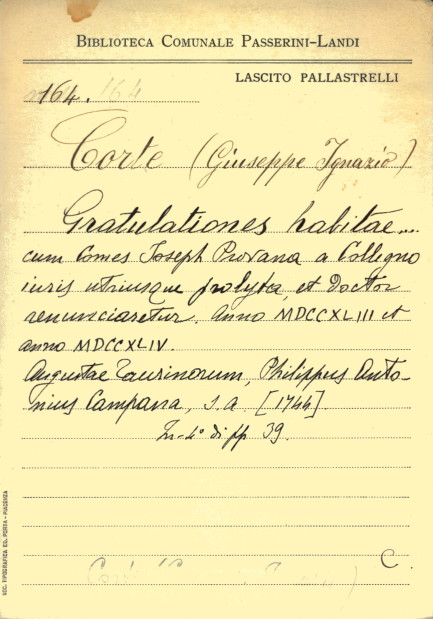 BIBLIOTECA COMUNALE PASSERINI-LANDI
LASCITO PALLASTRELLI
164. 164
Corte (Giuseppe Ignazio)
Gratulationes habitae...
cum Comes Joseph Provana a Collegno
iuris utriusque prolyta, et Doctor
renunciaretur. Anno MDCCXLIII et
anno MDCCXLIV.
Augustae Taurinorum, Philippus Anto-
nius Campana, s. a. [1744].
In-4° di pp 39.
C.
SOC. TIPOGRAFICA ED. PORTA - PIACENZA